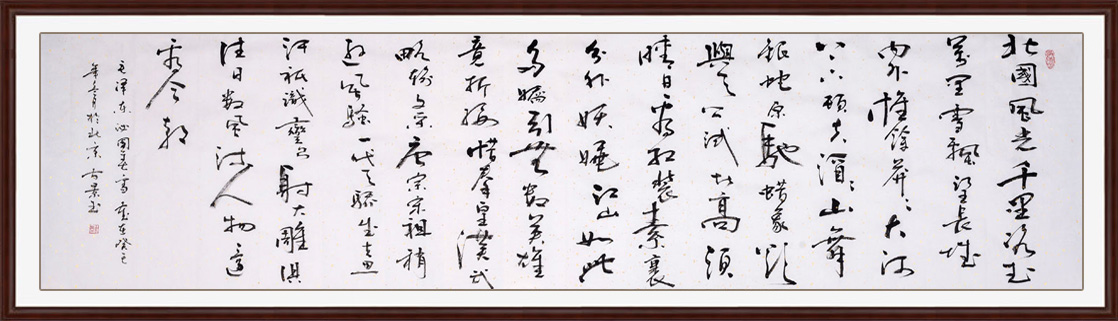 北國風光千里冰封
萬里雪飄望長城
內外惟餘莽莽大河
上下頓失滔滔山舞
銀蛇原馳蜡象欲
與天公試比高須
晴日看紅裝素裹
分外妖嬈江山如此
多嬌引無數英雄
竟折腰惜秦皇漢武
略輸文采唐宗宋祖稍
遜風騷一代天驕成吉思
汗祇識彎弓射大雕俱
往矣數風流人物還
看今朝
毛澤東沁園春雪歲在癸巳
月於北京